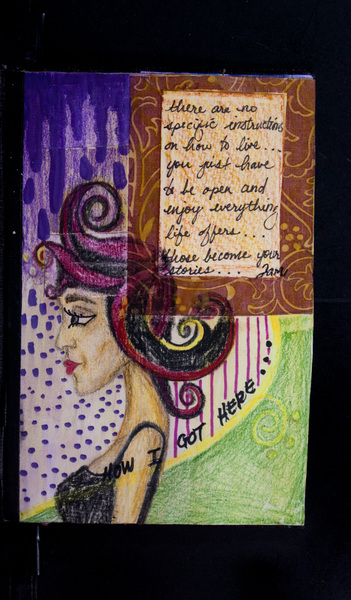 there are no
specific instructions
on how to live...
you just have
to be open and
enjoy everything
life offers....
those become your
stories...
HOW I GOT HERE...